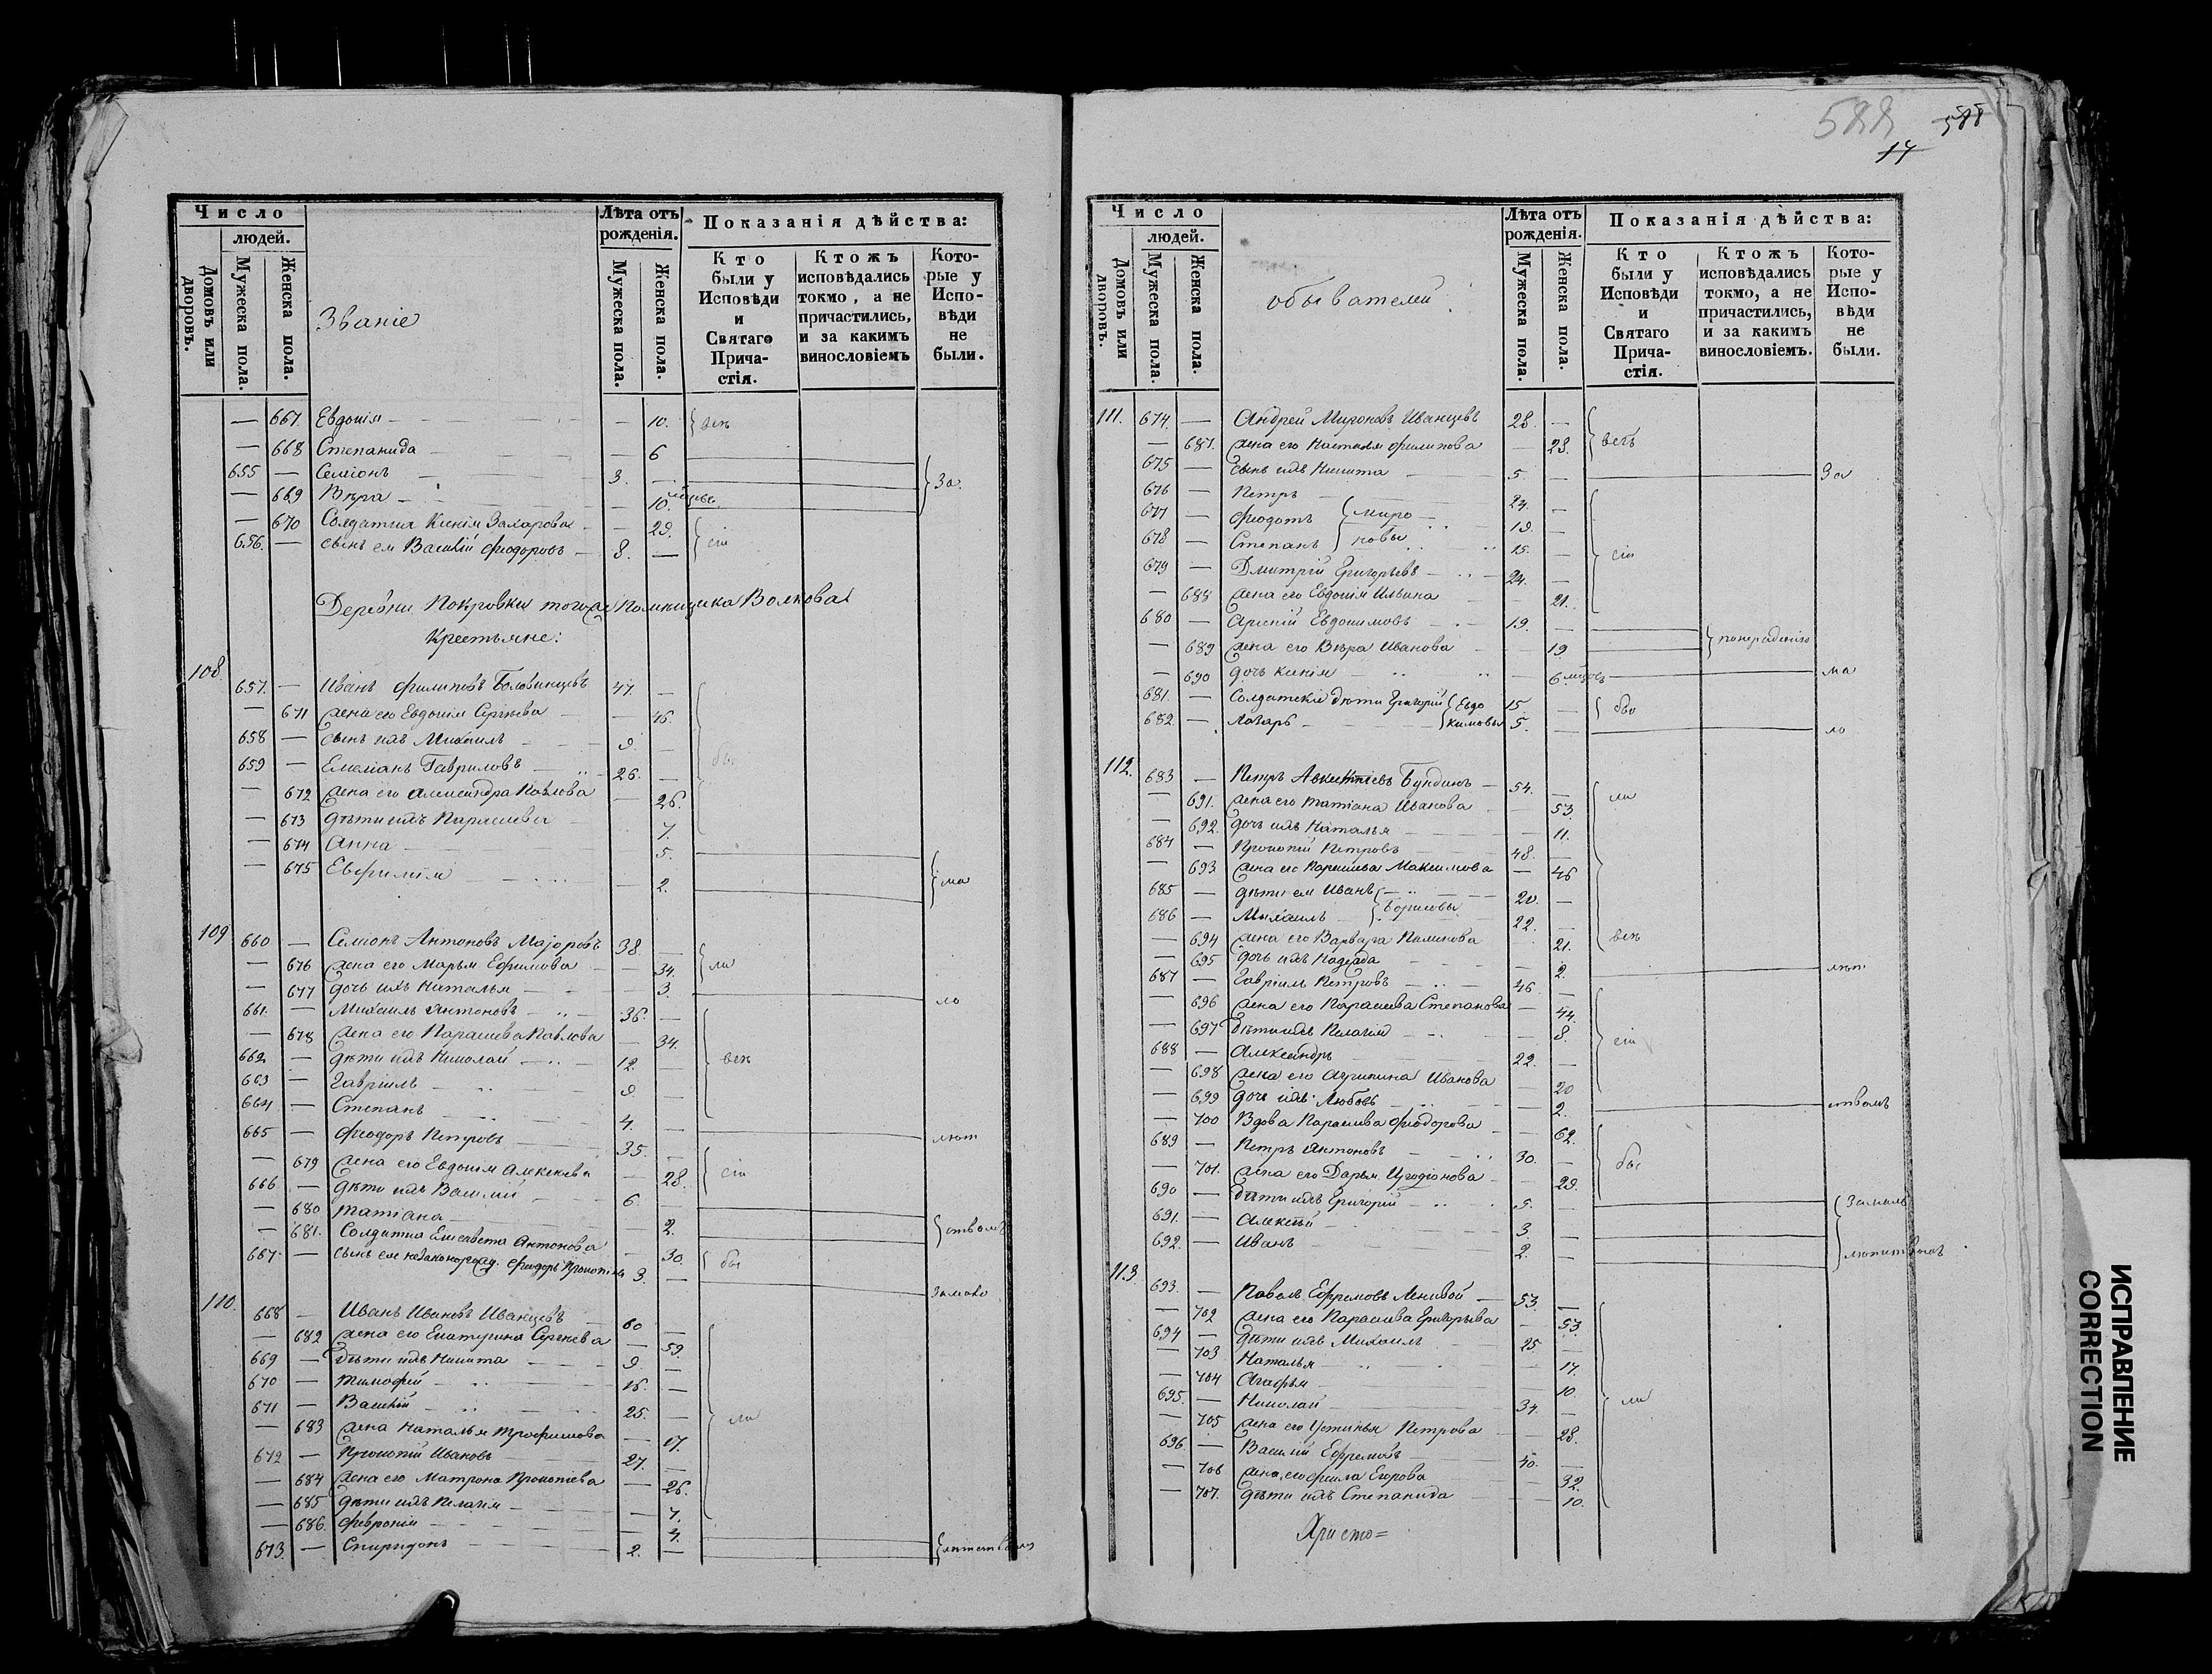 588
588
17
Число
людей.
Домовъ или дворовъ.
Мужеска пола.
Женска пола.
Званіе
Лѣта отъ рожденія.
Мужеска пола.
Женска пола.
Показанія дѣйства:
Кто были у Исповѣди и Святаго Причастія.
Ктожъ исповѣдались токмо, а не причастились, и за какимъ винословіемъ
Которые у Исповѣди не были.
— 667. Евдокія — 10. всѣ
— 668 Степанида — 6
655 — Семіонъ 3. — За
— 669 Вѣра — 10.
— 670 Солдатка Ксенія Захарова — 29.
656. — сынъ ея Василій Феодоровъ — 8. — сіи
Деревни Покровки тогоже Помѣщика Волкова
Крестьяне:
108.
657. — Иванъ Филиповъ 47. —
— 671 жена его Евдокія Сергѣева — 46.
658 — сынъ ихъ Михаилъ 9. —
659 — Емеліанъ Гавриловъ 26. — бы
— 672 жена его Александра Павлова — 26.
— 673 дѣти ихъ Парасковья 7.
— 674 Анна 5.
— 675 Евфимія — 2. ма
109
660 — Семіонъ Антоновъ Маіоровъ 38. —
— 676 жена его Марья Ефимова — 34. ли
— 677 дочь ихъ Наталья 3. ло
661. — Михаилъ Антоновъ 36. —
— 678 жена его Парасева Павлова — 34.
662 — дѣти ихъ Николай 12. — всѣ
663 — Гавріилъ 9. —
664 — Степанъ 4. — лѣт
665 — Феодоръ Петровъ 35. —
— 679 жена его Евдокія Алексѣева — 28. сіи
666 — дѣти ихъ Василій 6 —
— 680 Татіана 2. ствомъ
— 681. Солдатка Елисавета Антонова — 30. бы
667 — сынъ ея незаконорожд. Феодоръ 3. — Замало
110.
668 — Иванъ Ивановъ Иванцевъ 60 —
— 682 жена его Екатерина Сергѣева — 59.
669 — дѣти ихъ Никита 9. —
670 — Тимофей 16. —
671 — Василій 25. — ли
— 683 жена Наталья Трофимова — 17.
672 — Прокопій Ивановъ 27. —
— 684 жена его Матрона Прокопіева — 26.
— 685 дѣти ихъ Пелагія 7.
— 686. Февронія — 4.
673. — Спиридонъ 2. — лѣтствомъ
Число
людей.
Домовъ или дворовъ.
Мужеска пола.
Женска пола.
обывателей.
Лѣта отъ рожденія.
Мужеска пола.
Женска пола.
Показанія дѣйства:
Кто были у Исповѣди и Святаго Причастія.
Ктожъ исповѣдались токмо, а не причастились, и за какимъ винословіемъ.
Которые у Исповѣди не были.
111. 674. — Андрей Мироновъ Иванцевъ 28. —
— 687. жена его Настасья Филипова — 23. всѣ
675 — сынъ ихъ Никита 5. — За
676 — Петръ 24. —
677 — Феодотъ Миро 19. —
678 — Степанъ новы 15. — сіи
679 — Дмитрій Григорьевъ 24. —
— 688 жена его Евдокія Ильина 21.
680 — Арсеній Евдокимовъ 19. —
— 689 жена его Вѣра Иванова — 19 понерадѣнію
— 690 дочь Ксенія 6 мѣсяцовъ ма
681. — Солдатскіе дѣти Григорій Евдо 15. — бы
682. — Лазарь кимовы 5. — ло
112.
683 — Петръ Авксентіевъ Бундинъ 54. — ли
— 691. жена его Татіана Иванова — 53.
— 692. дочь ихъ Наталья — 11.
684 — Прокопій Петровъ 48. —
— 693 жена его Парасева Максимова — 46
685 — дѣти ея Иванъ 20. —
686 — Михаилъ Борисовы 22. —
— 694 жена его Варвара Пименова 21. всѣ
— 695 дочь ихъ Надежда — 2. лѣт
687 — Гавріилъ Петровъ 46. —
— 696 жена его Парасева Степанова — 44.
— 697 дѣти ихъ Пелагія — 8. сіи
688 — Александръ 22. —
— 698 жена его Агрипина Иванова — 20
— 699 дочь ихъ Любовь — 2. ствомъ
— 700 Вдова Парасева Феодорова — 62.
689 — Петръ Антоновъ 30. — бы
— 701. жена его Дарья Иродіонова — 29.
690 — дѣти ихъ Григорій 5. — Замало
691. — Алексѣй 3. —
692. — Иванъ 2. — лѣтствомъ
113.
693. — Павелъ Ефремовъ Ленивой 53. —
— 702 жена его Парасева Григорьева — 53
694 — дѣти ихъ Михаилъ 25. —
— 703 Наталья 17.
— 704 Агафья 10.
695. — Николай 34. — ли
— 705 жена его Устинья Петрова — 28.
696. — Василій Ефремовъ 40. —
— 706 жена его Фекла Егорова 32.
— 707. дѣти ихъ Степанида — 10.
Христо=
ИСПРАВЛЕНИЕ
CORRECTION